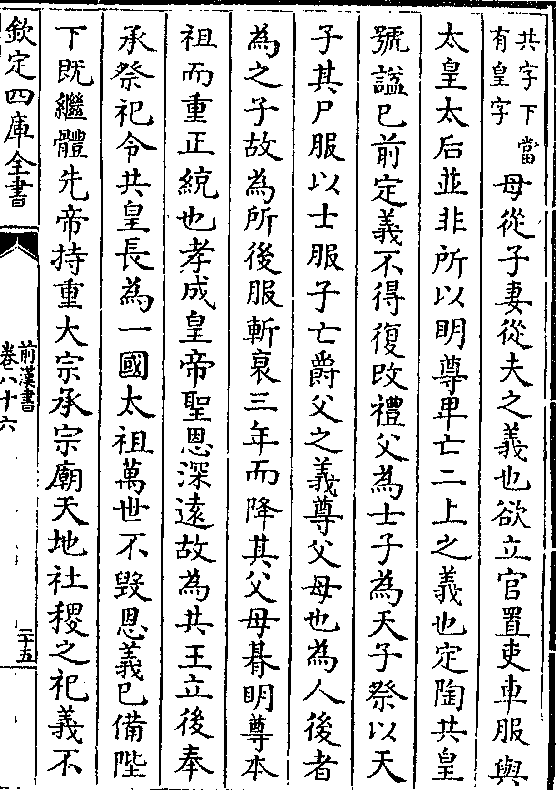 共字下當
有皇字
母從子妻從夫之義也欲立官置吏車服與
太皇太后並非所以明尊卑亡二上之義也定陶共皇
號諡已前定義不得復改禮父為士子為天子祭以天
子其尸服以士服子亡爵父之義尊父母也為人後者
為之子故為所後服斬衰三年而降其父母朞明尊本
祖而重正統也孝成皇帝聖恩深遠故為共王立後奉
承祭祀令共皇長為一國太祖萬世不毀恩義已備陛
下既繼體先帝持重大宗承宗廟天地社稷之祀義不
欽定四庫全書
前漢書
卷八十六
二十五